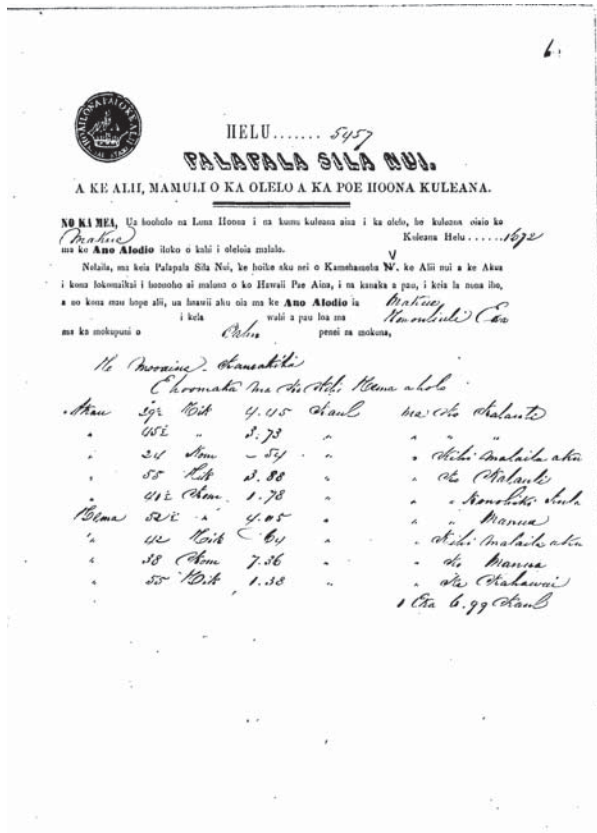 6.
HELU....... 5457
PALAPALA SILA NUI.
A KE ALII, MAMULI O KA OLELO A KA POE HOONA KULEANA.
NO KA MEA, Ua hooholo na Luna Hoona i na kumu kuleana aina i ka olelo, he kuleana oiaio ko
Makue Kuleana Helu......1672
ma ke Ano Alodio iloko o kahi i oleloia malalo.
Nolaila, ma keia Palapala Sila Nui, ke hoike aku nei o Kamehameha IV. ke Alii nui a ke Akua
i kona lokomaikai i hoonoho ai maluna o ko Hawaii Pae Aina, i na kanaka a pau, i keia la nona iho,
a no kona mau hope alii, ua haawii aku oia ma ke Ano Alodio ia Makue
i kela wahi a pau loa ma Honouliuli Ewa
ma ka mokupuni o Oahu penei na mokuna,
Ehoomaka ma ke Kihi Hema a holo
Akau 29½ Hik 4.45 Kaul ma ko Kalauli
" 45½ " 3.73 " " "
" 24 Kom - 54 " " Kihi malaila aku
" 55 Hik 3.88 " " ko Kalauli
" 41½ Kom. 1.78 " " Konohiki
Hema 52½ " 4.05 " " " Manua
" 42 Hik 64 " " Kihi malaila aku
" 38 Kom 7.36 " " ko Manua
" 55 Hik 1.38 " " Ke Kahawai
1 Eka 6.99 Kaul